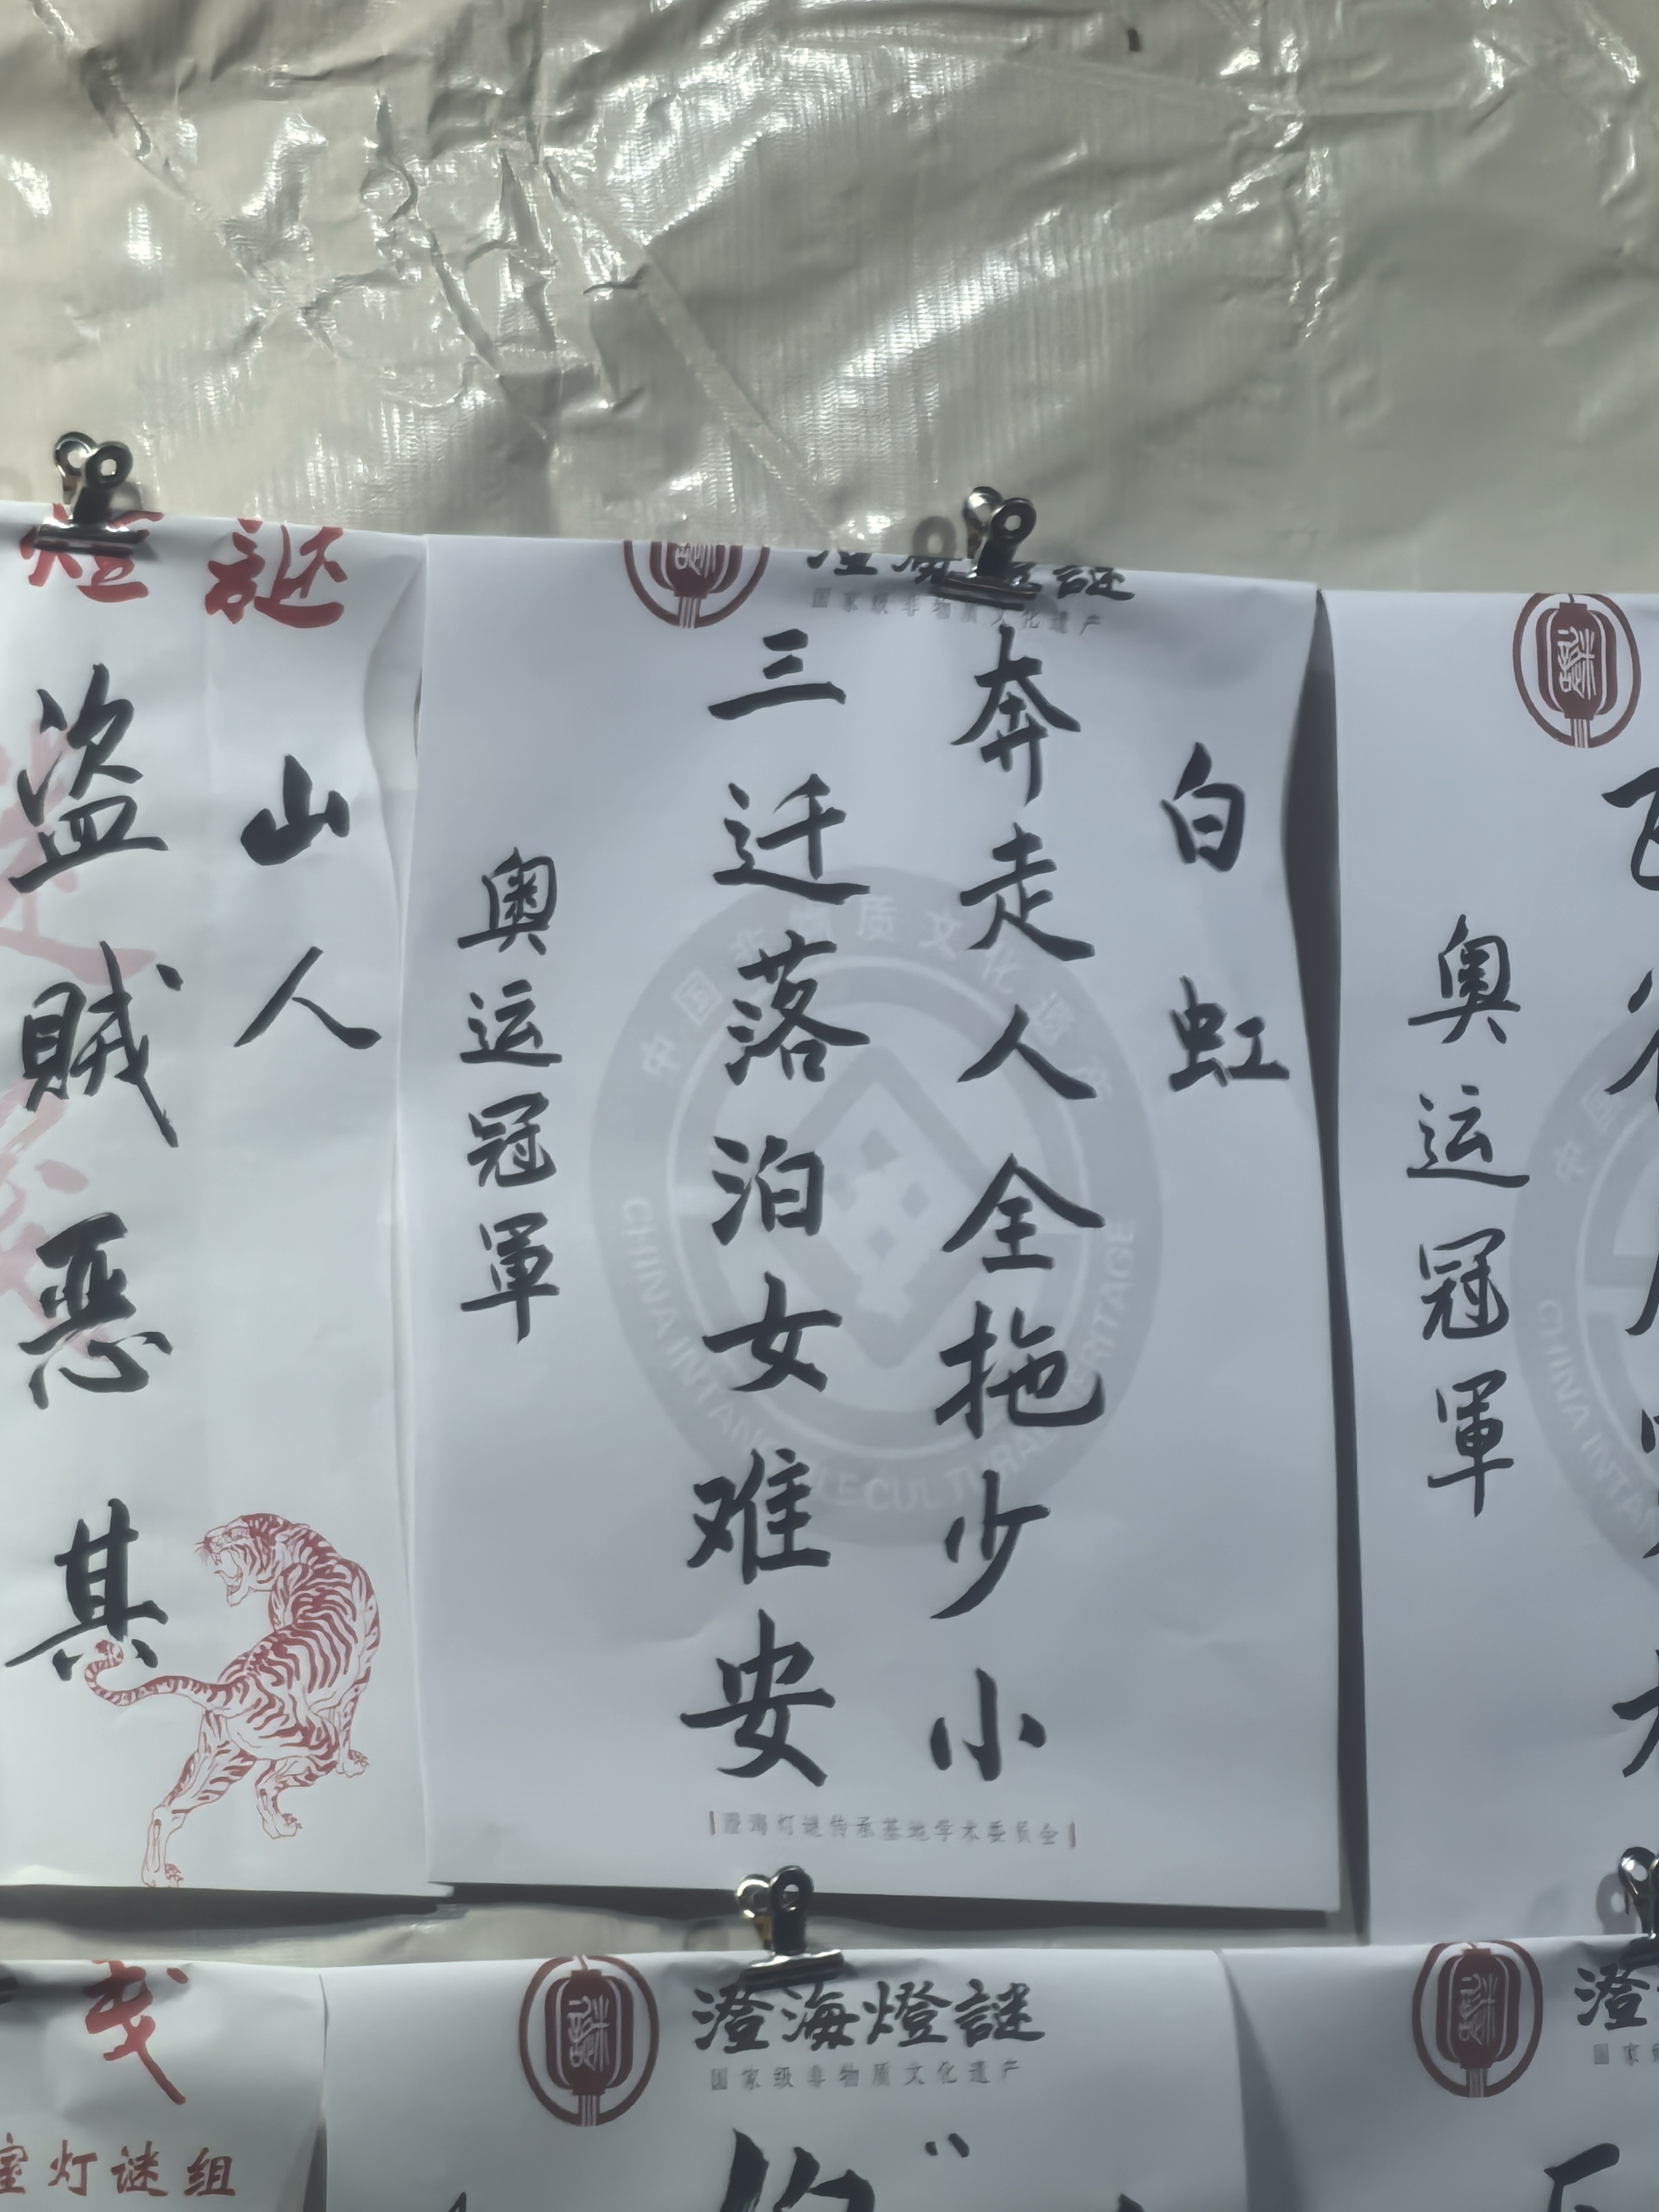 燈謎
山人
盗贼恶其
澄海燈謎
国家级非物质文化遗产
白虹
奔走人全拖少小
三迁落泊女难安
奥运冠軍
中国非物质文化遗产
CHINA INTANGIBLE CULTURAL HERITAGE
澄海灯谜传承基地学术委员会
謎
奥运冠軍
中国
CHINA INTAN
灯谜组
謎
澄海燈謎
国家级非物质文化遗产
謎
澄
国家